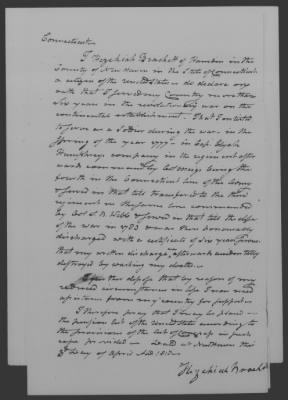 Connecticut
I Hezekiah Brackett of Hamden in the
County of New Haven in the State of Connecticut
a citizen of the United States do declare on
oath that I served my Country more than
Six years in the revolutionary war on the
continental establishment. That I enlisted
to serve as a Soldier during the war in the
Spring of the year 1777 in Capt Elijah
Humphreys company in the regiment after
wards commanded by Col Meigs being the
fourth in the Connecticut line of the Army
& served in that till transferred to the third
regiment in the same line commanded
by Col S. B. Webb & served in that till the close
of the war in 1783 & was then honorably
discharged with a certificate of six years service
that my written discharge afterwards accidentally
destroyed by
further depose that by reason of my
reduced circumstances in life I now need
assistance from my country for support
I therefore pray that I may be placed on
the pension list of the United States according to
the provisions of the late act of Congress in such
case provided. Dated at New Haven this
day of April A.D. 1818
Hezekiah Brackett